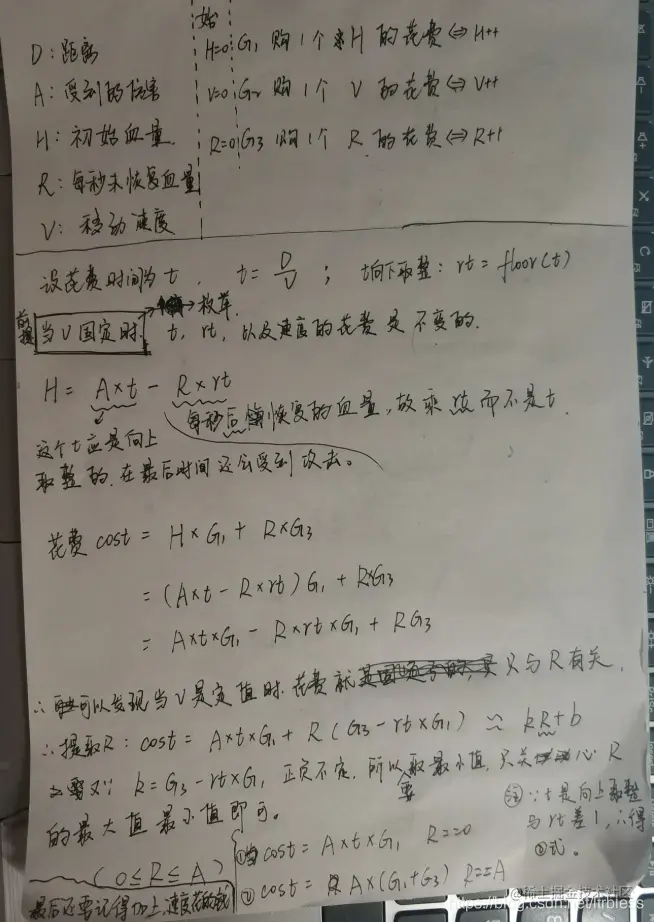 D：距离
A：受到的伤害
H：初始血量.
R：每秒末恢复血量
V：移动速度
始
H=0 G₁ 购1个 H 的花费⇔H++
V=0 G₂ 购1个 V 的花费⇔V++
R=0 G₃ 购1个 R 的花费⇔R++
设花费时间为t. t=D/V； t向下取整：rt=floor(t)
→枚举.
前提 当V固定时. t, rt, 以及速度的花费是不变的.
H = A×t - R×rt
每秒后恢复的血量，故乘rt而不是t.
这个t应是向上
取整的.在最后时间还会受到攻击。
花费 cost = H×G₁ + R×G₃
= (A×t - R×rt)G₁ + R×G₃
= A×t×G₁ - R×rt×G₁ + RG₃
∴可以发现当V是定值时.花费就只与R有关.
∴提取R：cost = A×t×G₁ + R(G₃-rt×G₁) ≈ kR+b
又∵ k=G₃-rt×G₁ 正负不定.所以要取最小值,只关心R
的最大值最小值即可。
(0≤R≤A)
最后还要记得加上,速度花的钱
①当cost = A×t×G₁ R==0
② cost = A×(G₁+G₃) R==A
注：∵t是向上取整
与rt差1,∴得
②式。
@稀土掘金技术社区
https://blog.csdn.net/ltrbless